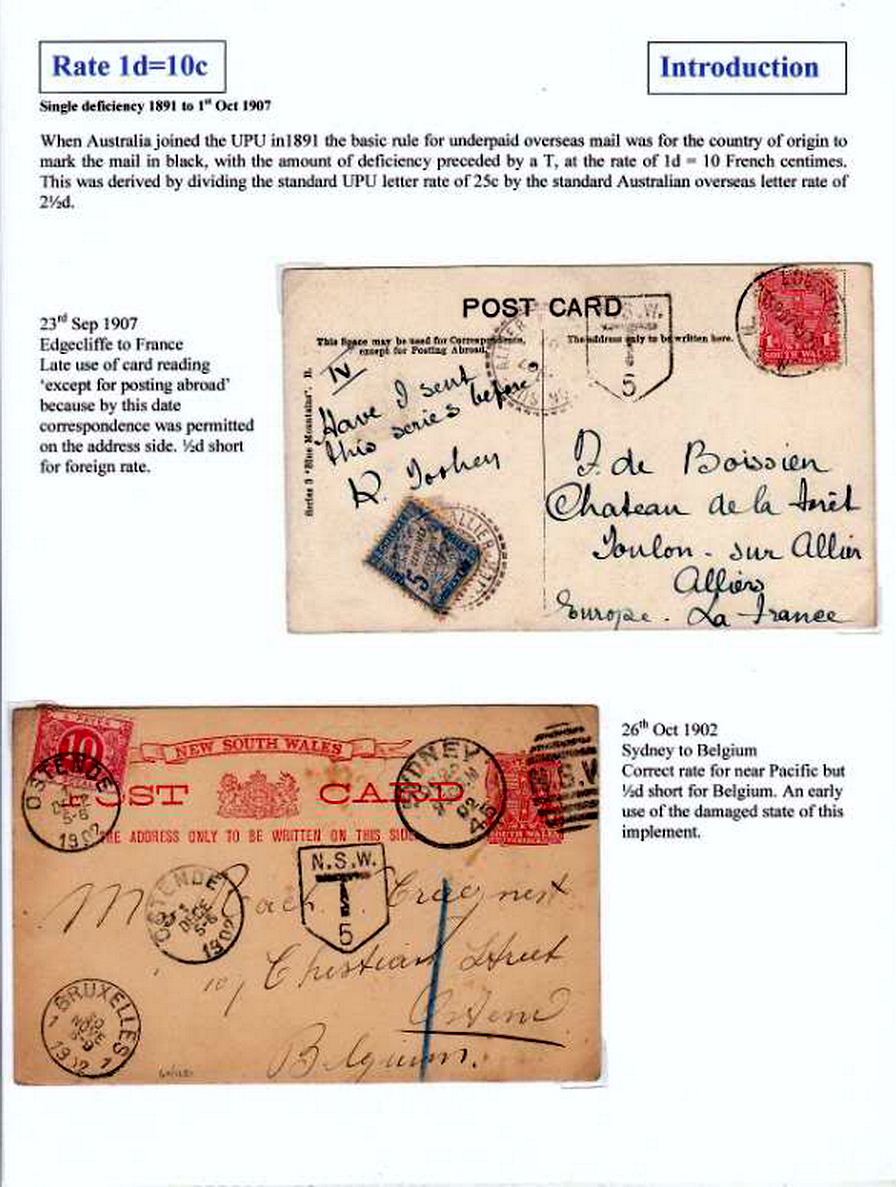 Rate 1d=10c
Introduction
Single deficiency 1891 to 1st Oct 1907
When Australia joined the UPU in1891 the basic rule for underpaid overseas mail was for the country of origin to
mark the mail in black, with the amount of deficiency preceded by a T, at the rate of 1d = 10 French centimes.
This was derived by dividing the standard UPU letter rate of 25c by the standard Australian overseas letter rate of
2½d.
23rd Sep 1907
Edgecliffe to France
Late use of card reading
‘except for posting abroad’
because by this date
correspondence was permitted
on the address side. ½d short
for foreign rate.
POST CARD
This Space may be used for Correspondence,
except for Posting Abroad.
The address only to be written here.
N.S.W.
T
5
SOUTH WALES
Series 3 "Blue Mountains". B.
IV
Have I sent
this series before
R. Toohey
F. de Boissien
Chateau de la Forêt
Toulon - sur Allier
Alliers
Europe - La France
ALLIER
5
26th Oct 1902
Sydney to Belgium
Correct rate for near Pacific but
½d short for Belgium. An early
use of the damaged state of this
implement.
10
NEW SOUTH WALES
POST CARD
THE ADDRESS ONLY TO BE WRITTEN ON THIS SIDE
SYDNEY
OSTENDE
5-6
1902
N.S.W.
T
5
OSTENDE
DECE
5-6
1902
M
Christian Street
Ostend
Belgium.
BRUXELLES
1902